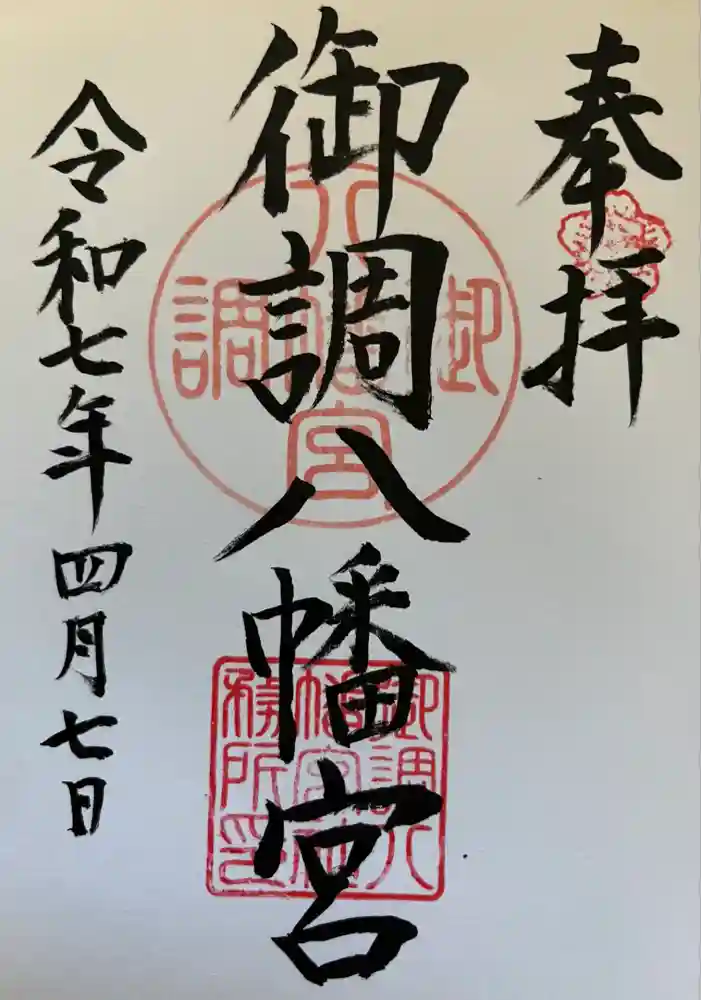 奉拝
御調八幡宮
令和七年四月七日
八幡宮
御
調
御調八
幡宮社
務所印